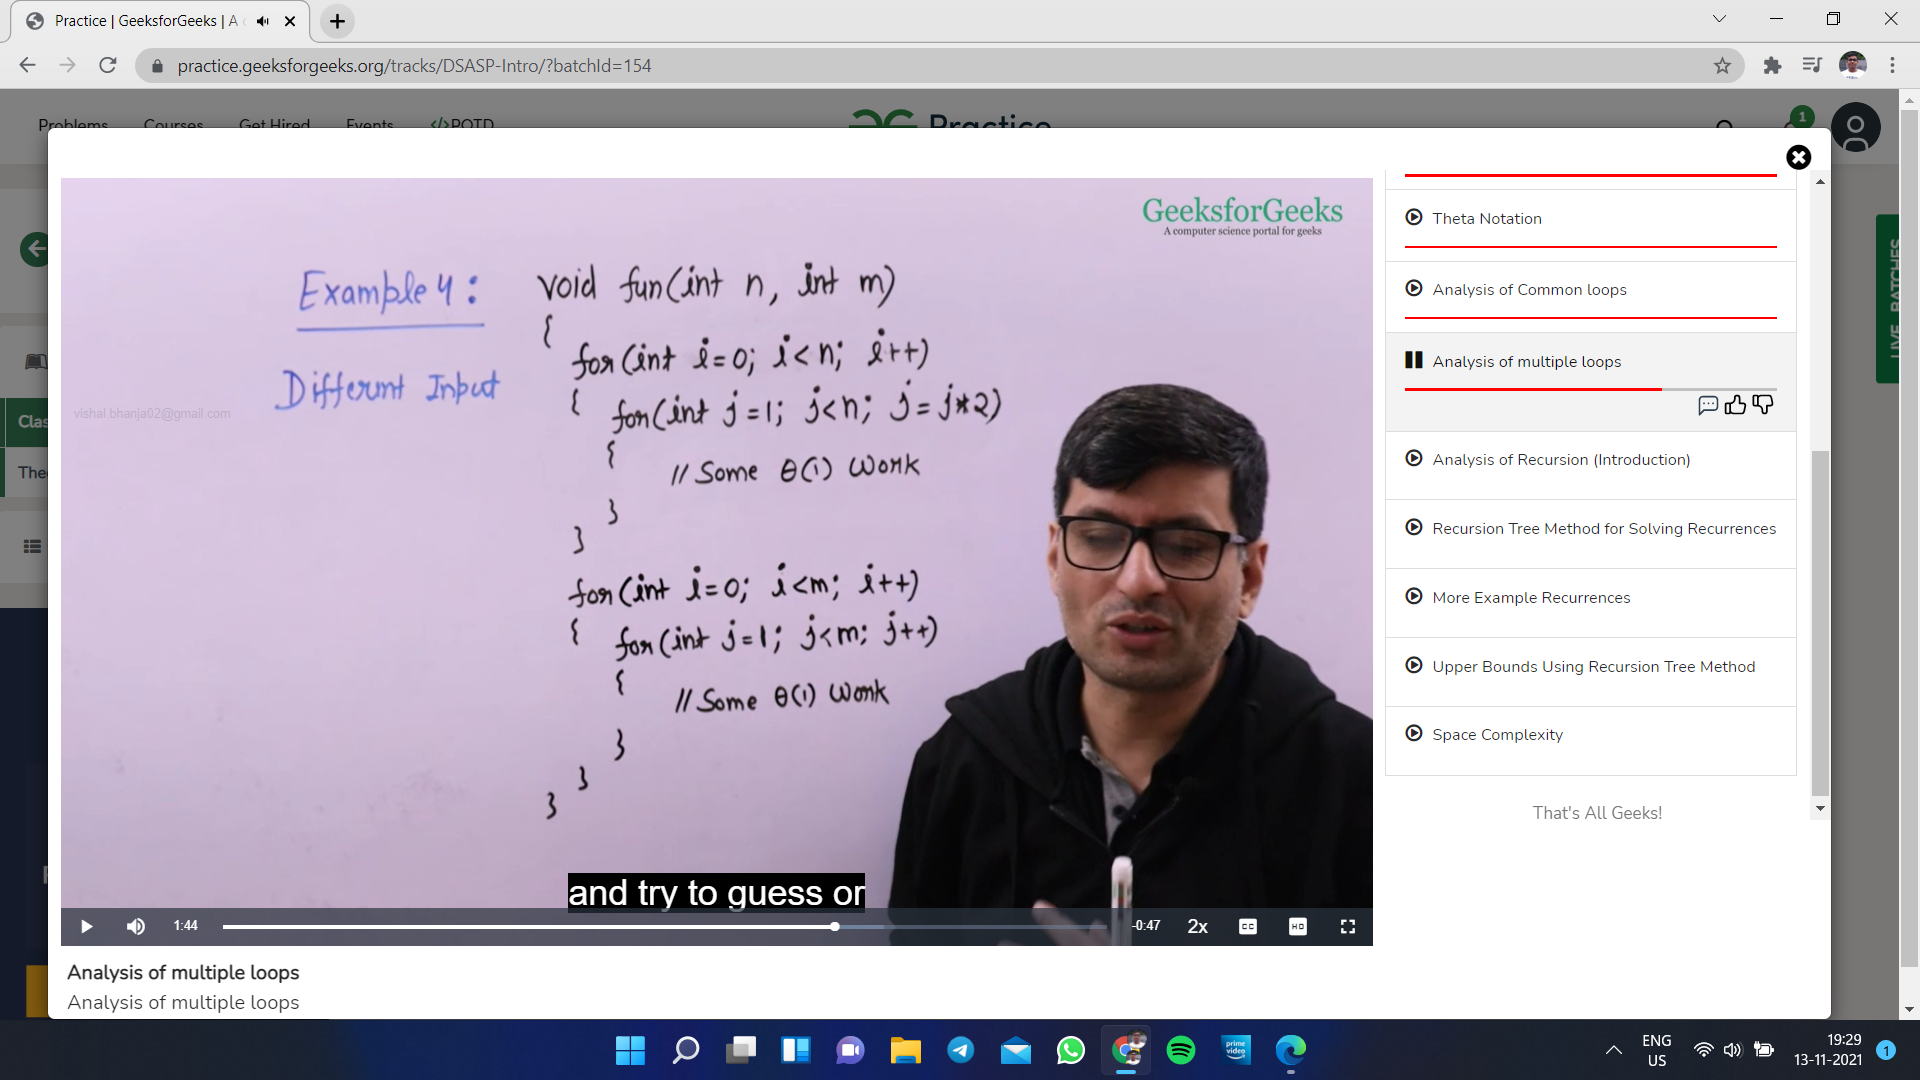 Practice | GeeksforGeeks | A
practice.geeksforgeeks.org/tracks/DSASP-Intro/?batchId=154
Problems Courses Get Hired Events </>POTD Practice
1
GeeksforGeeks
A computer science portal for geeks
Example 4:
Different Input
vishal.bhanja02@gmail.com
void fun(int n, int m)
{
for(int i=0; i<n; i++)
{ for(int j=1; j<n; j=j*2)
{
// Some θ(1) Work
}
}
for(int i=0; i<m; i++)
{ for(int j=1; j<m; j++)
{
// Some θ(1) Work
}
}
}
and try to guess or
1:44
-0:47
2x
CC
HD
Analysis of multiple loops
Analysis of multiple loops
Theta Notation
Analysis of Common loops
Analysis of multiple loops
Analysis of Recursion (Introduction)
Recursion Tree Method for Solving Recurrences
More Example Recurrences
Upper Bounds Using Recursion Tree Method
Space Complexity
That's All Geeks!
LIVE BATCHES
Clas
The
prime video
ENG
US
19:29
13-11-2021
1